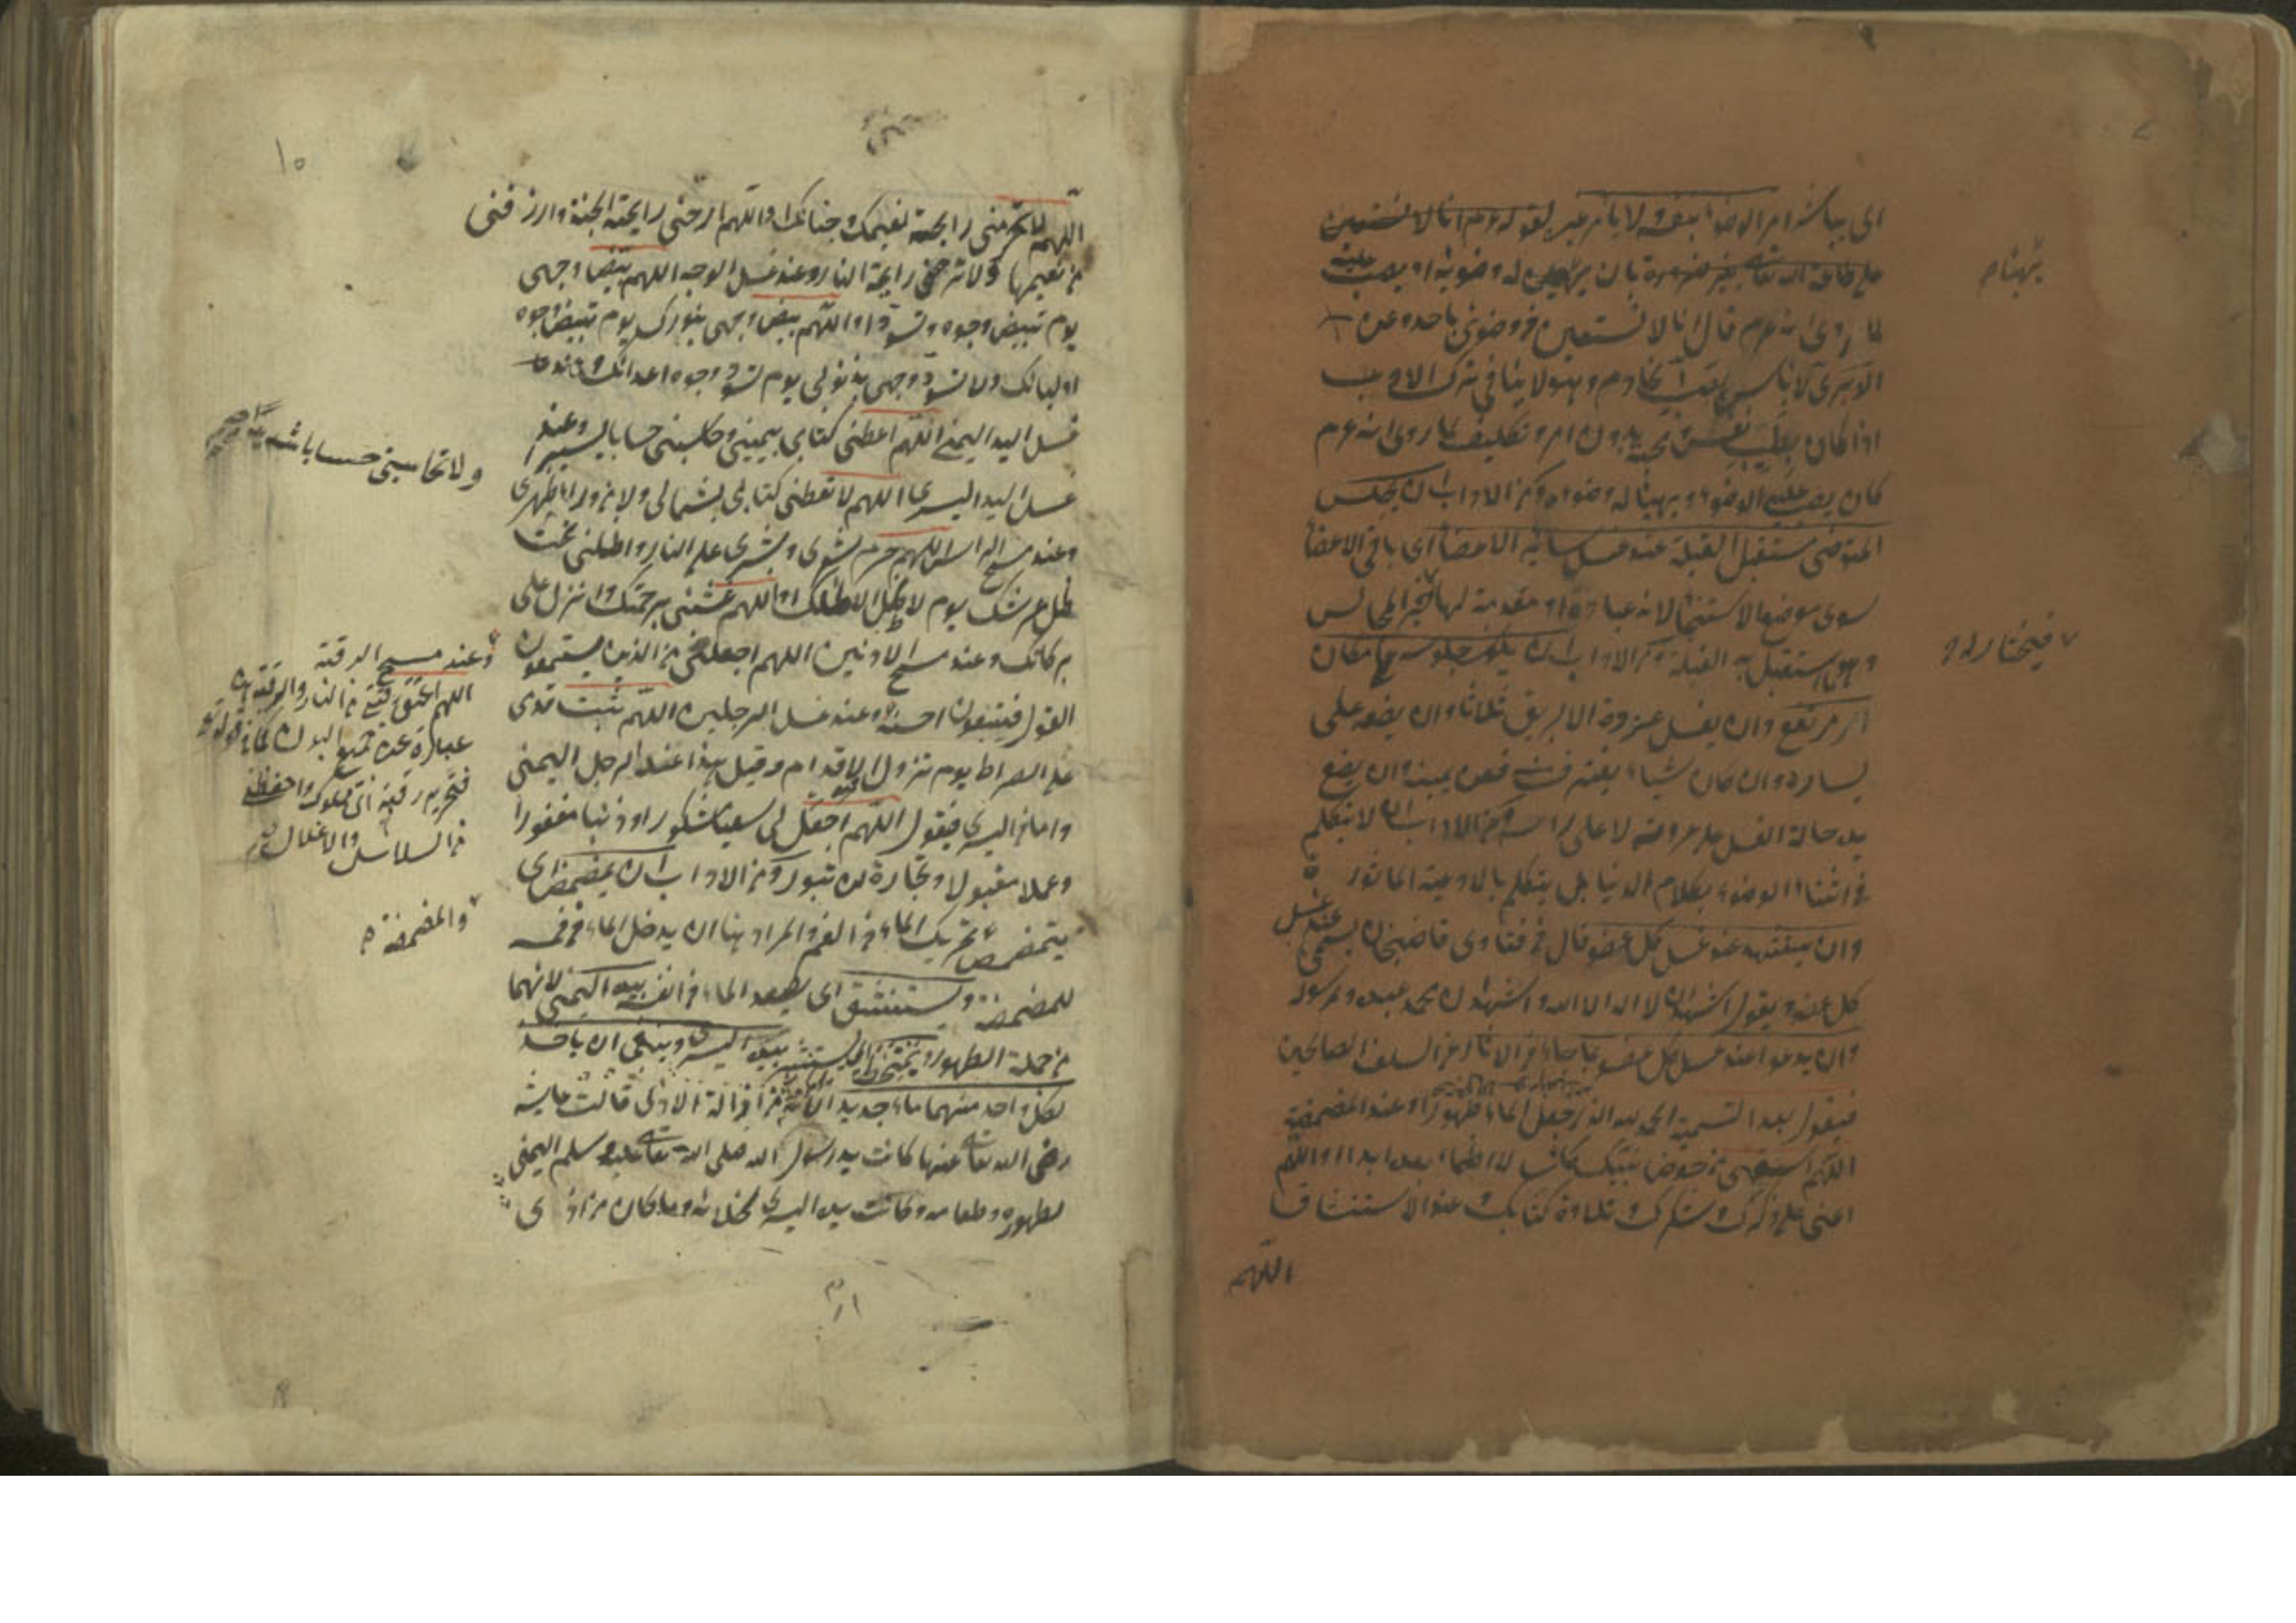 اى يباشر امر الوضوء بنفسه لا يأمر غيره لقوله عم انا لا نستعين
على طاعة الله تعالى بغير ضرورة بان يهيئ له وضوئه او يصب عليه
لما روى انه عم قال انا لا نستعين فى وضوئى باحد وعن
الوبرى لا بأس بصب الخادم وهو لا ينافى ترك الادب
اذا كان بطيب نفس ومحبة بدون امر وتكليف لما روى انه عم
كان يصب عليه الوضوء ويهيئا له وضوءه ومن الاداب ان يجلس
المتوضى مستقبل القبلة عند غسل سائر الاعضاء اى باقى الاعضا
سوى موضع الاستنجا لانه عبادة او مقدمة لها خير المجالس
وهو استقبل به القبلة ومن الاداب ان يكون جلوسه على مكان
مرتفع وان يغسل عروة الابريق ثلاثا وان يضعه على
يساره وان كان شيئا يغترف منه فعن يمينه وان يضع
يده حالة الغسل على عروته لا على راسه ومن الاداب ان لا يتكلم
فى اثناء الوضوء بكلام الدنيا بل يتكلم بالادعية الماثور ة
وان يتشهد عند غسل كل عضو قال فى فتاوى قاضيخان يسمى عند غسل
كل عضو ويقول اشهد ان لا اله الا الله واشهد ان محمد عبده ورسوله
وان يدعو عند غسل كل عضو بما جاء فى الاثار من السلف الصالحين
فيقول بعد التسمية الحمد لله الذى جعل الماء طهورا وعند المضمضة
اللهم اسقنى من حوض نبيك كأسا لا اظماء بعده ابدا او اللهم
اعنى على ذكرك وشكرك وتلاوة كتابك وعند الاستنشاق
اللهم
١٠
اللهم لا تحرمنى رايحة نعيمك وجناتك او اللهم ارحنى رايحة الجنة وارزقنى
من نعيمها ولا ترحنى رايحة النار وعند غسل الوجه اللهم بيض وجهى
يوم تبيض وجوه وتسود او اللهم بيض وجهى بنورك يوم تبيض وجوه
اوليائك ولا تسود وجهى بذنوبى يوم تسود وجوه اعدائك وعند
غسل اليد اليمنى اللهم اعطنى كتابى بيمينى وحاسبنى حسابا يسيرا وعند
غسل اليد اليسرى اللهم لا تعطنى كتابى بشمالى ولا من وراء ظهرى
وعند مسح الراس اللهم حرم شعرى وبشرى على النار واظلنى تحت
ظل عرشك يوم لا ظل الا ظلك او اللهم غشنى برحمتك وانزل على
بركاتك وعند مسح الاذنين اللهم اجعلنى من الذين يستمعون
القول فيتبعون احسنه وعند غسل الرجلين اللهم ثبت قدمى
على الصراط يوم تزول الاقدام وقيل هذا عند الرجل اليمنى
واما فى اليسرى فيقول اللهم اجعل لى سعيا مشكورا وذنبا مغفورا
وعملا مقبولا وتجارة لن تبور ومن الاداب ان يمضمض اى
يتمضمض تحريك الماء فى الفم والمراد هنا ان يدخل الماء فى فمه
للمضمضة ويستنشق اى يصعد الماء فى انفه بيده اليمنى لانهما
من جملة الطهور ويمتخط اى يستنثر بيده اليسرى وينبغى ان ياخذ
لكل واحد منهما ماء جديدا قالت عايشة
رضى الله تعالى عنها كانت يد رسول الله صلى الله تعالى عليه وسلم اليمنى
لطهوره وطعامه وكانت يده اليسرى لخلائه وما كان من اذى
ولا تحاسبنى حسابا شديدا
وعند مسح الرقبة
اللهم اعتق رقبتى من النار والرقبة
عبارة عن جميع البدن كما فى قوله
فتحرير رقبة اى مملوك واحفظنى
من السلاسل والاغلال
والمضمضة